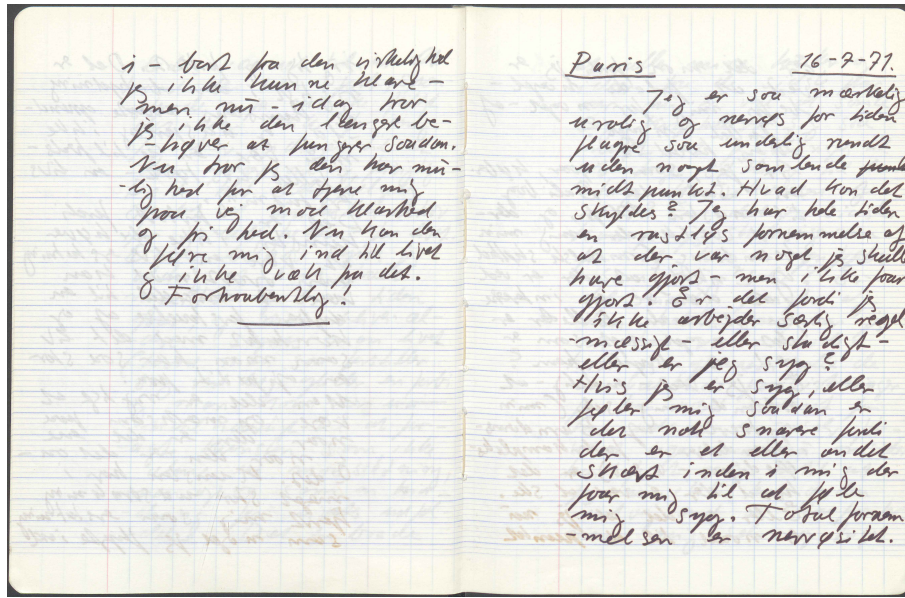 i - bort fra den virkelighed
jeg ikke kunne klare -
men nu - idag tror
jeg ikke den længere be-
-høver at fungerer saadan.
Nu tror jeg den har mu-
-lighed for at tjene mig
paa vej mod klarhed
og frihed. Nu kan den
føre mig ind til livet
og ikke væk fra det.
Forhaabentlig!
Paris 16-7-71.
Jeg er saa mærkelig
urolig og nervøs for tiden
flagre saa underlig rundt
uden noget samlende
midtpunkt. Hvad kan det
skyldes? Jeg har hele tiden
en rastløs fornemmelse af
at der var noget jeg skulle
have gjort - men ikke faar
gjort. Er det fordi jeg
ikke arbejder særlig regel-
-mæssigt - eller stadigt -
eller er jeg syg?
Hvis jeg er syg, eller
føler mig saadan er
det nok snarere fordi
der er et eller andet
skævt inden i mig der
faar mig til at føle
mig syg. Total fornem-
-melsen er nervøsitet.